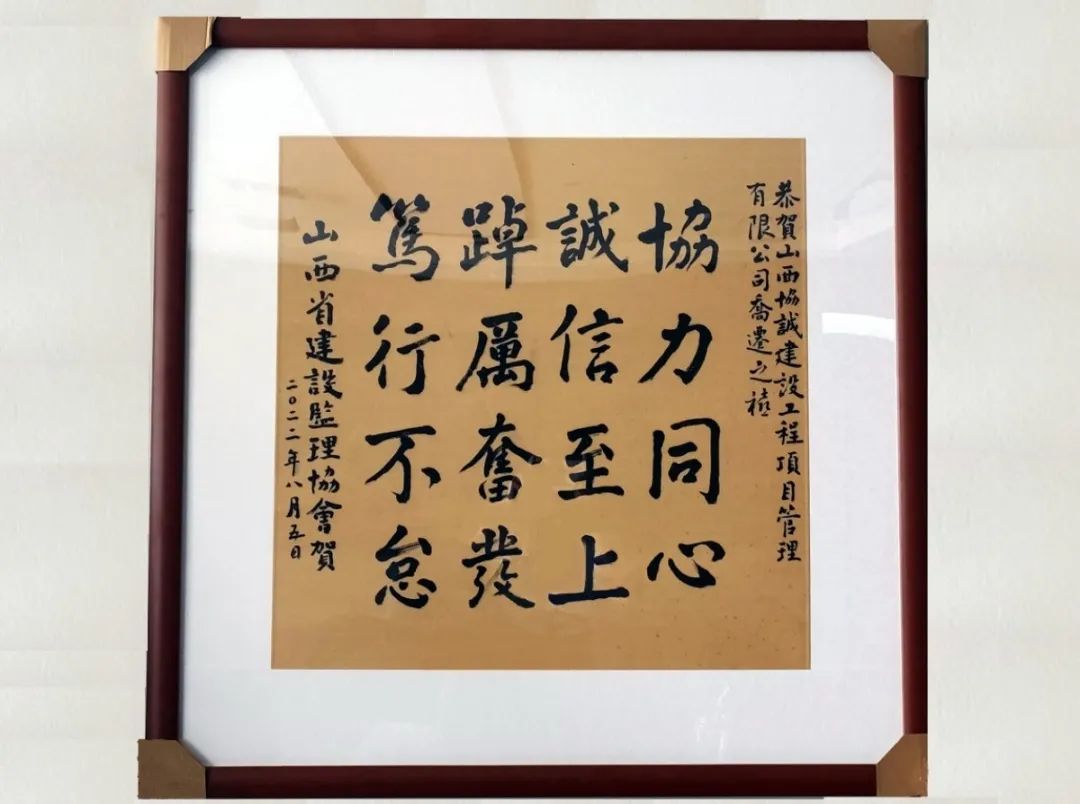 恭賀山西協誠建設工程項目管理
有限公司喬遷之禧
協力同心
誠信至上
踔厲奮發
篤行不怠
山西省建設監理協會賀
二〇二二年八月五日